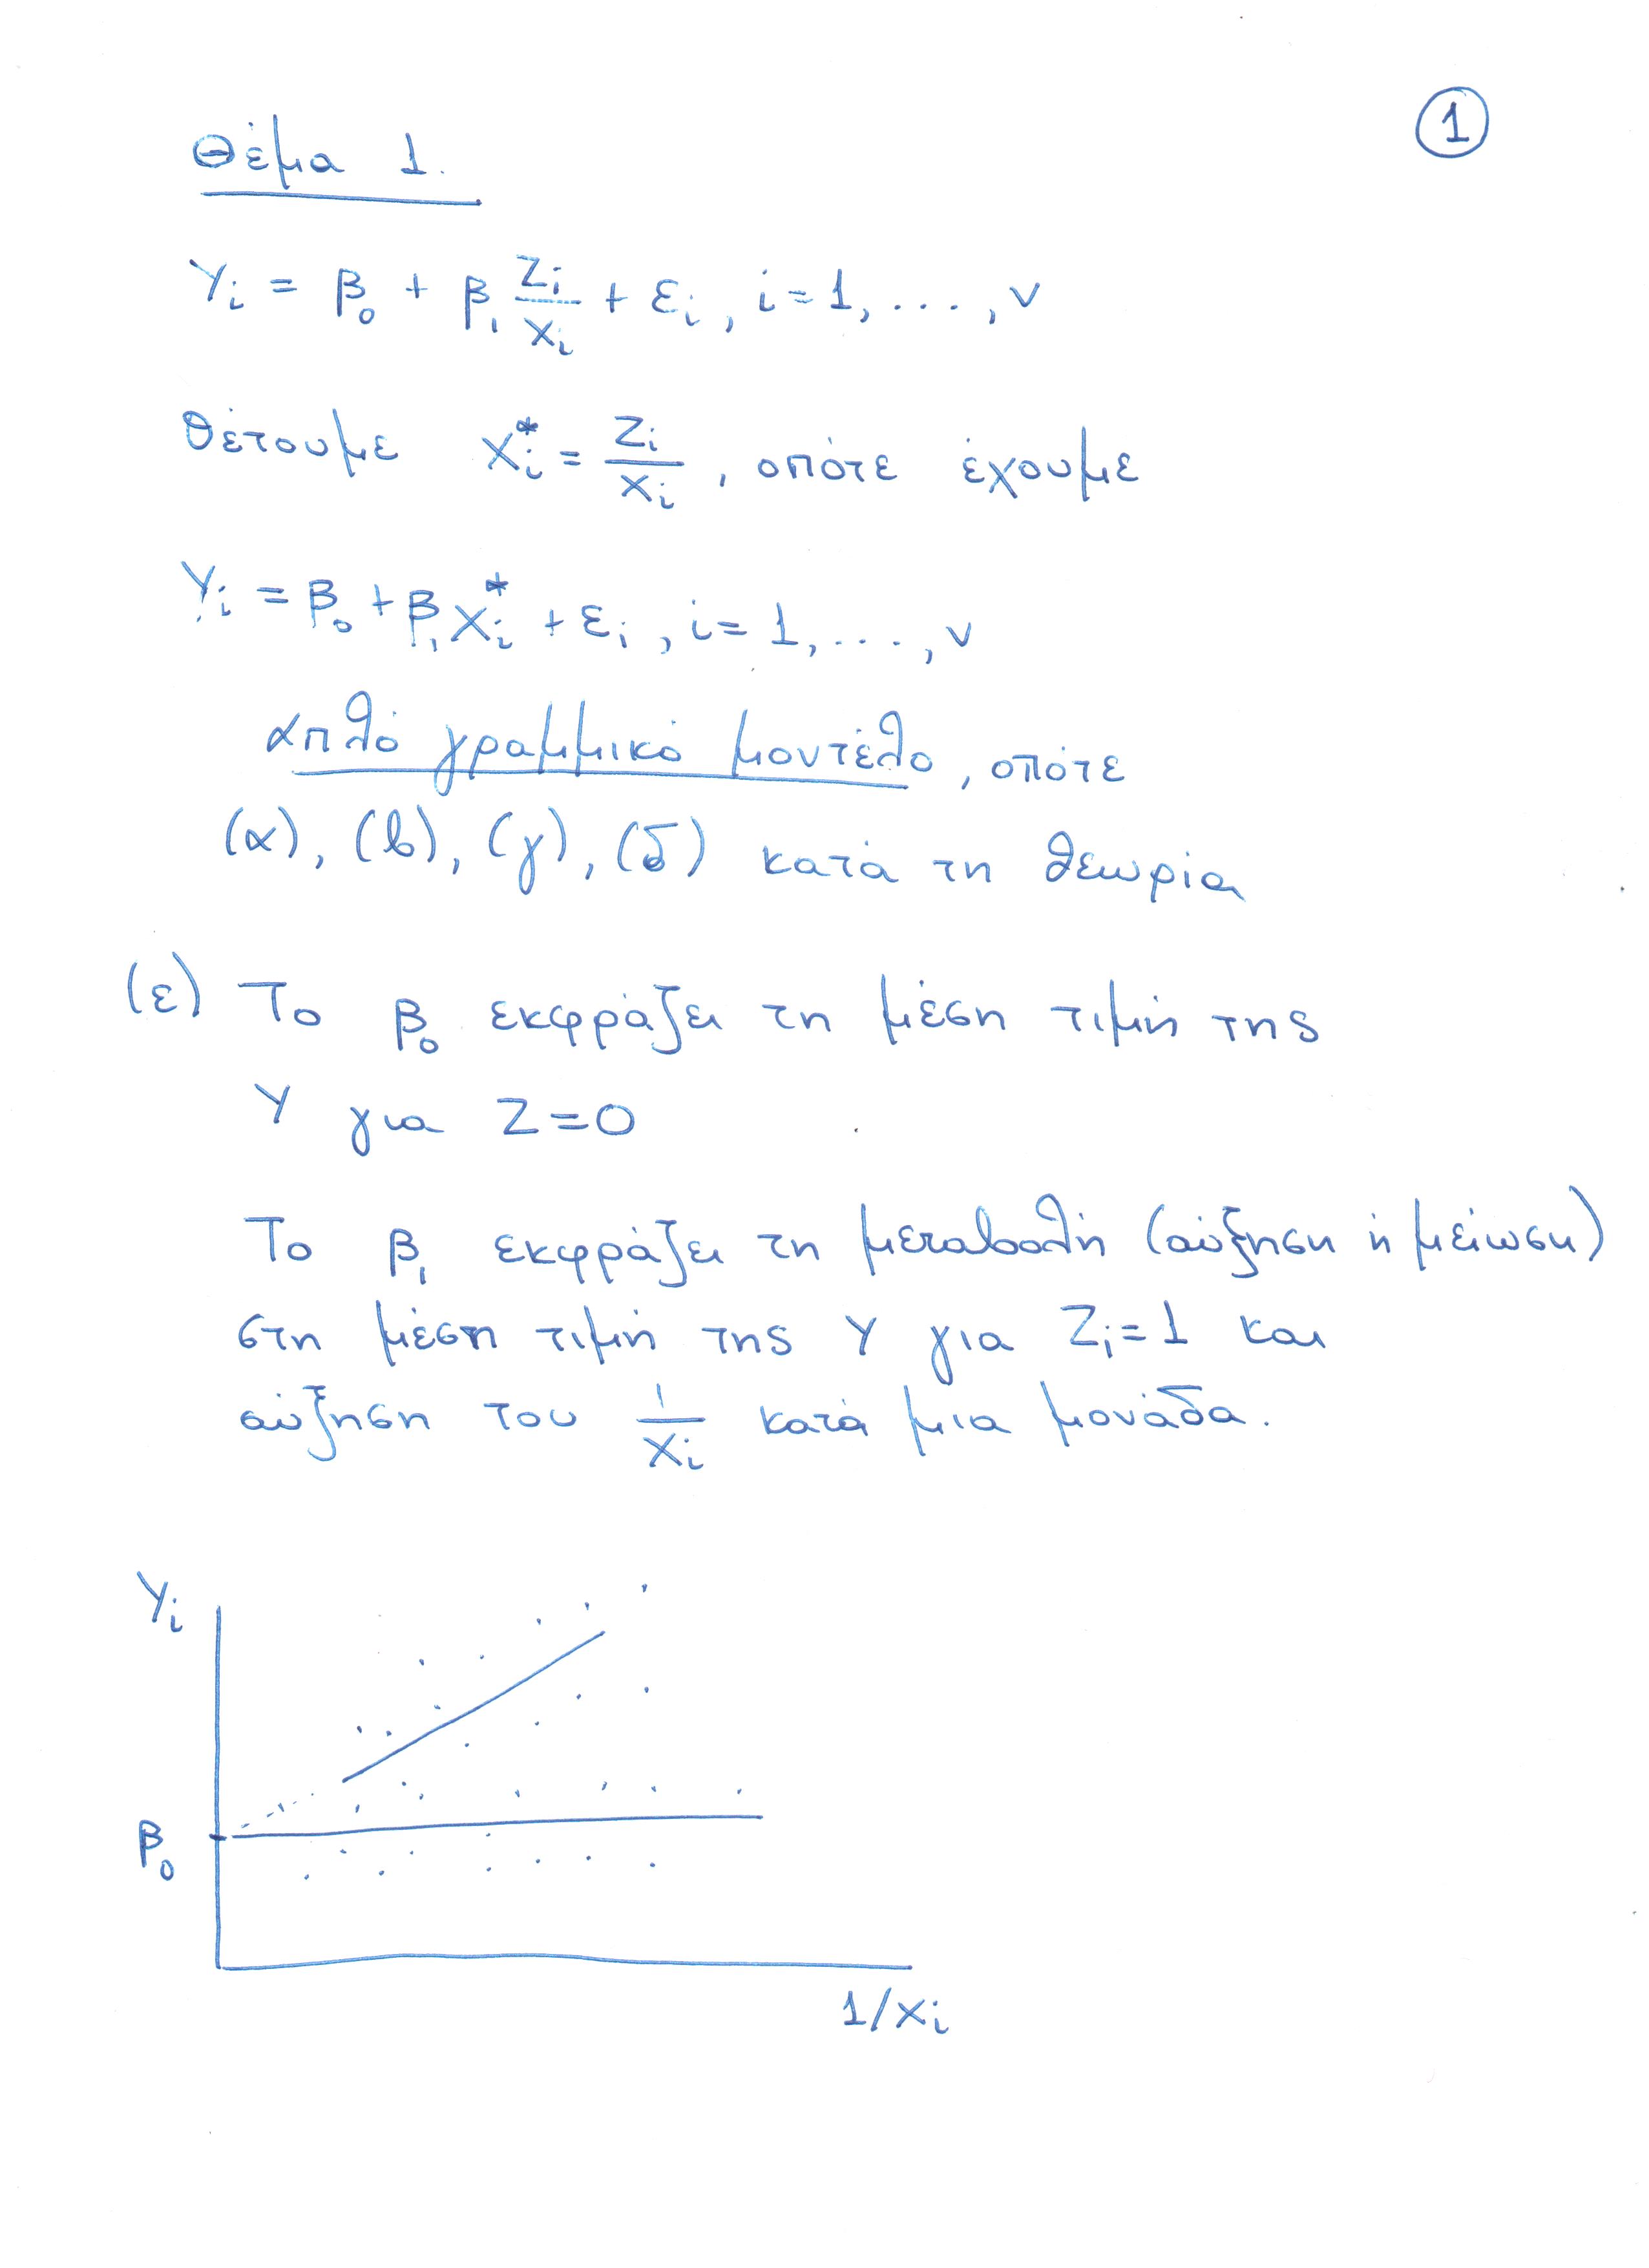 ①
Θέμα 1.
Yᵢ = β₀ + β₁ Zᵢ/Xᵢ + εᵢ, i=1, ..., ν
Θέτουμε Xᵢ* = Zᵢ/Xᵢ, οπότε έχουμε
Yᵢ = β₀ + β₁Xᵢ* + εᵢ, i=1, ..., ν
απλό γραμμικό μοντέλο, οπότε
(α), (β), (γ), (δ) κατά τη θεωρία
(ε) Το β₀ εκφράζει τη μέση τιμή της
Y για Z=0
Το β₁ εκφράζει τη μεταβολή (αύξηση ή μείωση)
στη μέση τιμή της Y για Zᵢ=1 και
αύξηση του 1/Xᵢ κατά μια μονάδα.
Yᵢ
β₀
1/Xᵢ